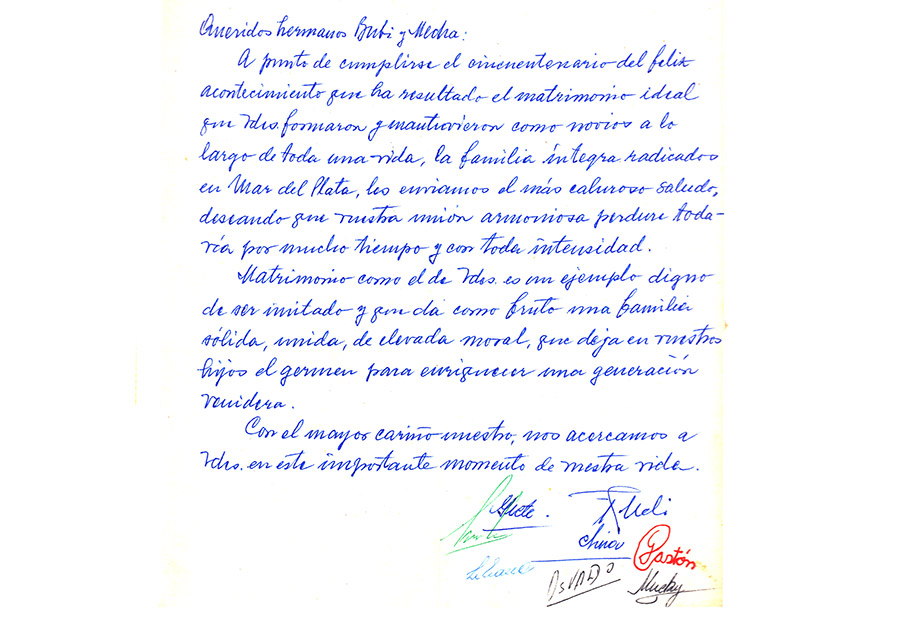 Queridos hermanos Bubi y Mecha:
A punto de cumplirse el cincuentenario del felíz
acontecimiento que ha resultado el matrimonio ideal
que Vds. formaron y mantuvieron como novios a lo
largo de toda una vida, la familia íntegra radicados
en Mar del Plata, les enviamos el más caluroso saludo,
deseando que vuestra unión armoniosa perdure toda-
vía por mucho tiempo y con toda intensidad.
Matrimonio como el de Vds. es un ejemplo digno
de ser imitado y que dá como fruto una familia
sólida, unida, de elevada moral, que deja en vuestros
hijos el germen para enriquecer una generación
venidera.
Con el mayor cariño nuestro, nos acercamos a
Vds. en este importante momento de vuestra vida.
Rudi
China
Gastón
Osvaldo
Mucky